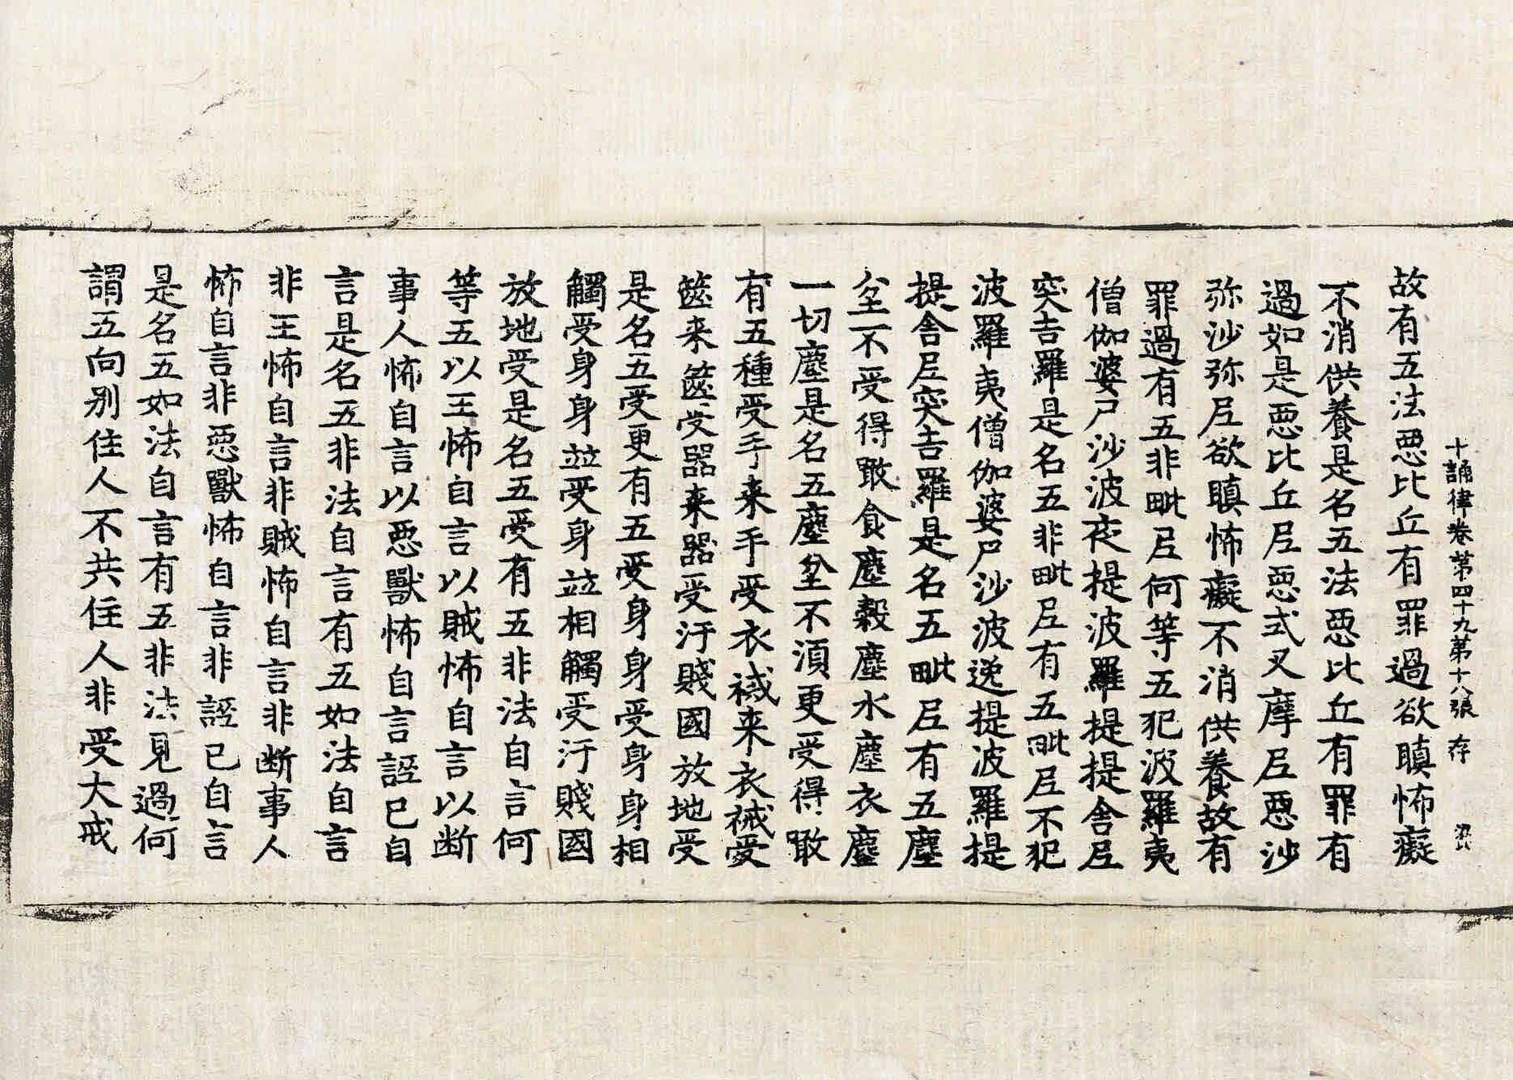 十誦律卷第四十九第十八張 存
故有五法惡比丘有罪過欲瞋怖癡
不消供養是名五法惡比丘有罪有
過如是惡比丘尼惡式叉摩尼惡沙
弥沙弥尼欲瞋怖癡不消供養故有
罪過有五非毗尼何等五犯波羅夷
僧伽婆尸沙波夜提波羅提提舍尼
突吉羅是名五非毗尼有五毗尼不犯
波羅夷僧伽婆尸沙波逸提波羅提
提舍尼突吉羅是名五毗尼有五塵
坌不受得噉食塵穀塵水塵衣塵
一切塵是名五塵坌不須更受得噉
有五種受手来手受衣襪来衣襪受
篋来篋受器来器受汙賤國放地受
是名五受更有五受身身受身身相
觸受身身並受身並相觸受汙賤國
放地受是名五受有五非法自言何
等五以王怖自言以賊怖自言以断
事人怖自言以惡獸怖自言誑已自
言是名五非法自言有五如法自言
非王怖自言非賊怖自言非断事人
怖自言非惡獸怖自言非誑已自言
是名五如法自言有五非法見過何
謂五向别住人不共住人非受大戒